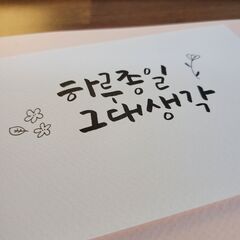 하루종일
그대생각